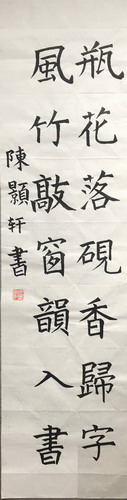 瓶花落硯香歸字
風竹敲窗韻入書
陳顥軒書